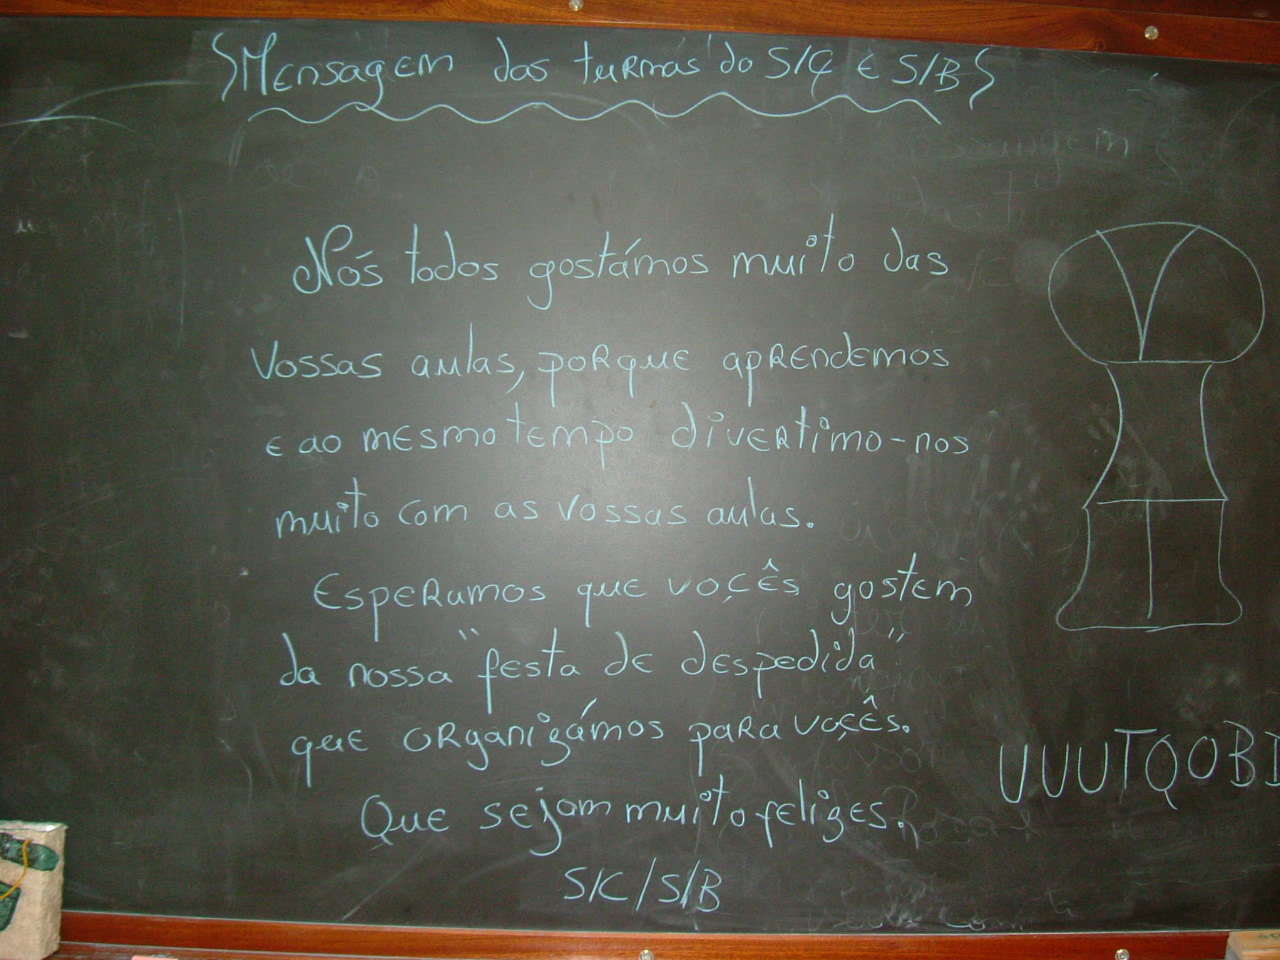 Mensagem das turmas do S/C e S/B
Nós todos gostámos muito das
vossas aulas, porque aprendemos
e ao mesmo tempo divertimo-nos
muito com as vossas aulas.
Esperamos que voçês gostem
da nossa "festa de despedida"
que organizámos para voçês.
Que sejam muito felizes.
S/C/S/B
UUUTQOBI